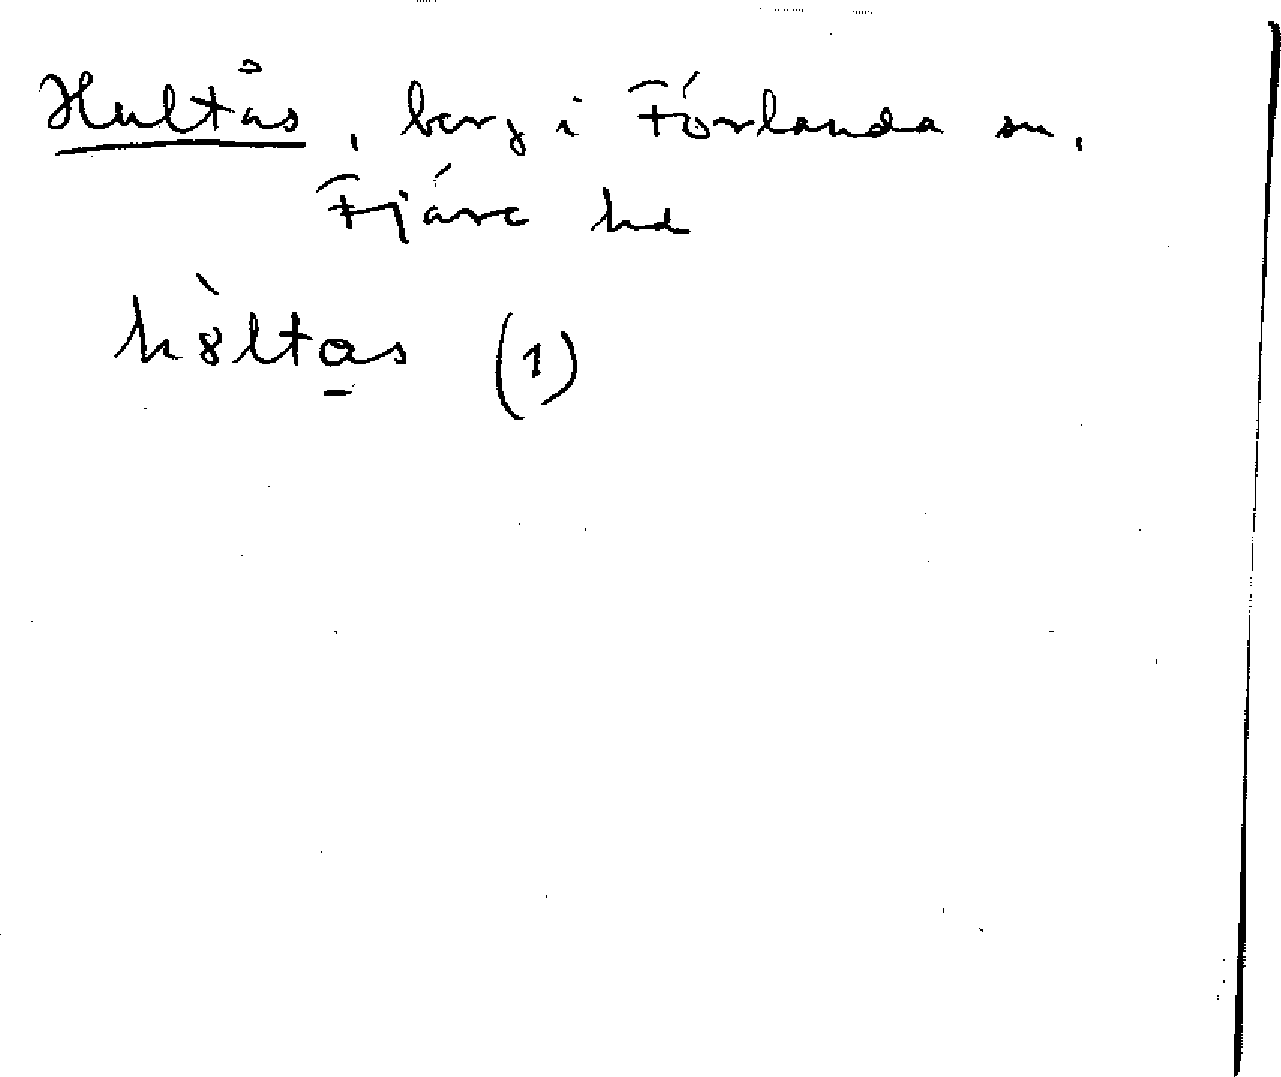 Hultås, berg i Förlanda sn,
Fjäre hd
hòltas (1)